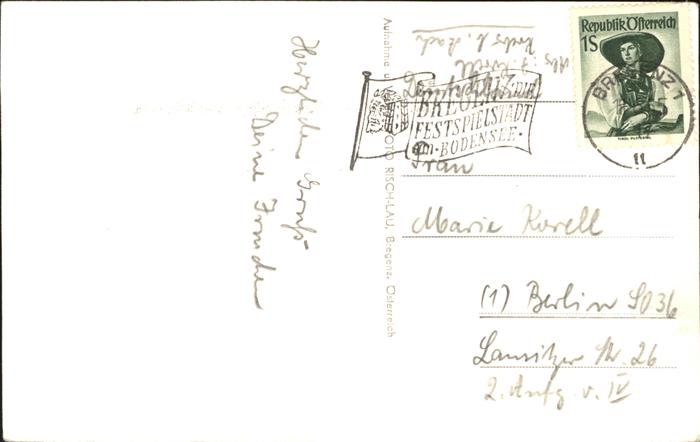 Herzlichen Gruß
Deine Frauchen
Aufnahme u. FOTO RISCH-LAU, Bregenz, Österreich
Abs.
Korell
Krebs b. Bach
Republik Österreich
1S
BREGENZ 1
11
BREGENZ DIE
FESTSPIELSTADT
am BODENSEE
Frau
Marie Korell
(1) Berlin SO36
Lausitzer Str. 26
2. Aufg. v. IV